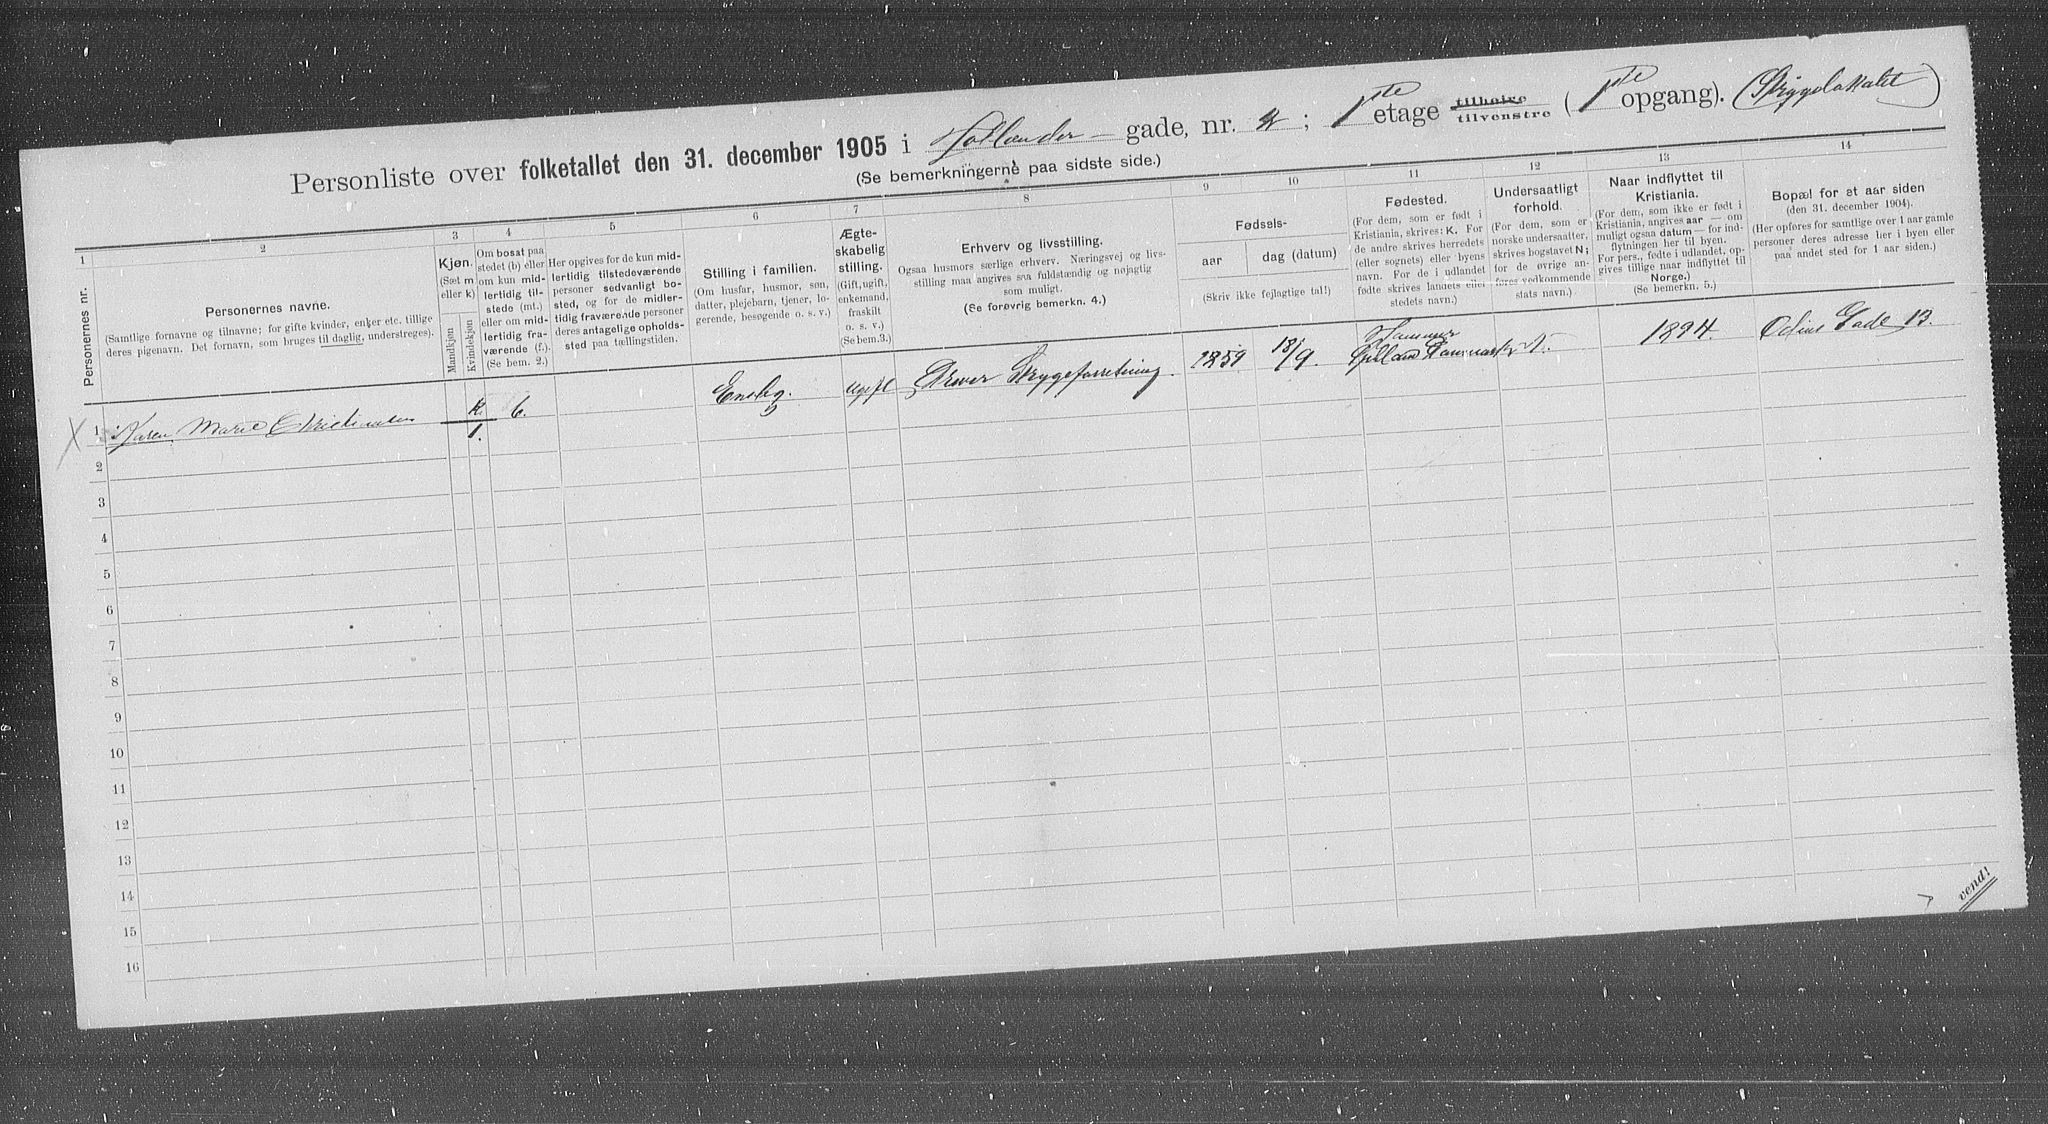 Personliste over folketallet den 31. december 1905 i Hollænder – gade, nr. 4 ; 1ste etage tilhøire tilvenstre ( 1ste opgang). (Strygelokalet)
(Se bemerkningerne paa sidste side.)
1 2 3 4 5 6 7 8 9 10 11 12 13 14
Personernes nr.
Personernes navne.
(Samtlige fornavne og tilnavne; for gifte kvinder, enker etc. tillige
deres pigenavn. Det fornavn, som bruges til daglig, understreges).
Kjøn.
(Sæt m
eller k)
Mandkjøn
Kvindekjøn
Om bosat paa
stedet (b) eller
om kun mid-
lertidig til-
stede (mt.)
eller om mid-
lertidig fra-
værende (f.).
(Se bem. 2.)
Her opgives for de kun mid-
lertidig tilstedeværende
personer sedvanlig bo-
sted, og for de midler-
tidig fraværende personer
deres antagelige opholds-
sted paa tællingstiden.
Stilling i familien.
(Om husfar, husmor, søn,
datter, plejebarn, tjener, lo-
gerende, besøgende o. s. v.)
Ægte-
skabelig
stilling.
(Gift, ugift,
enkemand,
fraskilt
o. s. v.)
(Se bem.3.)
Erhverv og livsstilling.
Ogsaa husmors særlige erhverv. Næringsvej og livs-
stilling maa angives saa fuldstændig og nøjagtig
som muligt.
(Se forøvrig bemerkn. 4.)
Fødsels-
aar
dag (datum)
(Skriv ikke fejlagtige tal!)
Fødested.
(For dem, som er født i
Kristiania, skrives: K. For
de andre skrives herredets
(eller sognets) eller byens
navn. For de i udlandet
fødte skrives landets eller
stedets navn.)
Undersaatligt
forhold.
(For dem, som er
norske undersaatter,
skrives bogstavet N;
for de øvrige an-
føres vedkommende
stats navn.)
Naar indflyttet til
Kristiania.
(For dem, som ikke er født i
Kristiania, angives aar — om
muligt ogsaa datum — for ind-
flytningen her til byen.
For pers., fødte i udlandet, op-
gives tillige naar indflyttet til
Norge.)
(Se bemerkn. 5.)
Bopæl for et aar siden
(den 31. december 1904).
(Her opføres for samtlige over 1 aar gamle
personer deres adresse her i byen eller
paa andet sted for 1 aar siden.)
X 1 Karen Marie Christensen k. 1. b. Enslig. Ugift Driver Strygeforretning. 1859 18/9. Hammer Jylland Danmark N. 1894. Odins Gade 13.
2
3
4
5
6
7
8
9
10
11
12
13
14
15
16
vend!